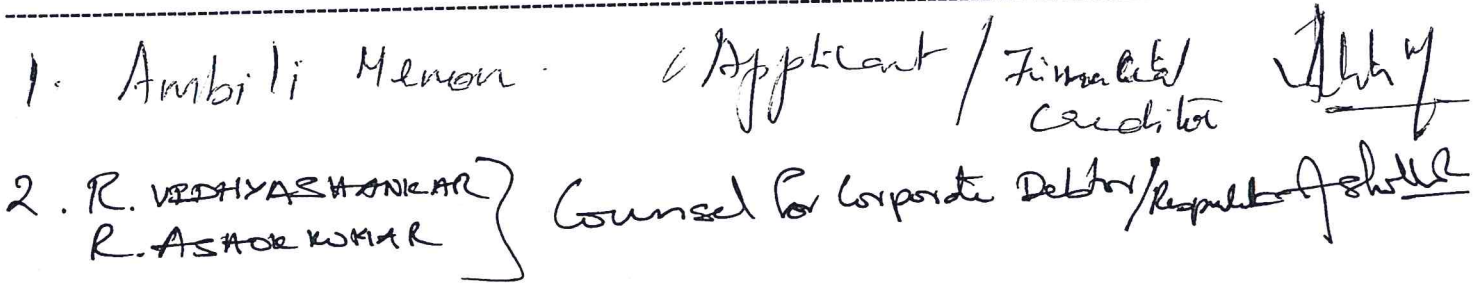 1. Ambili Menon. Applicant / Financial Creditor
2. R. VEDHYASHANKAR
R. ASHOK KUMAR } Counsel for Corporate Debtor/Respondent